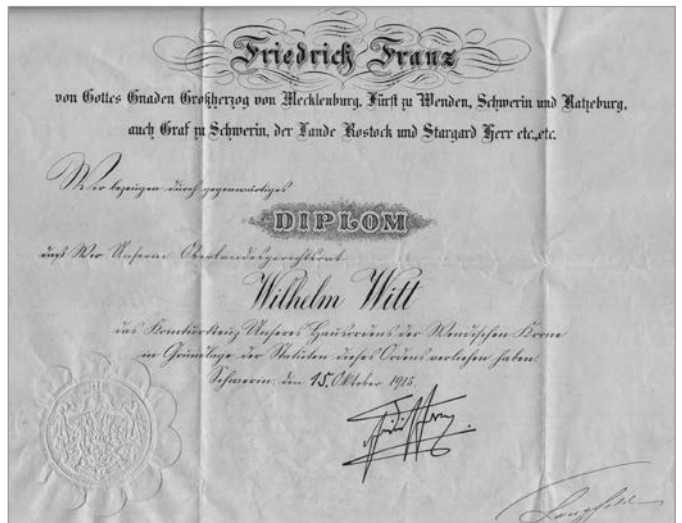 Friedrich Franz
von Gottes Gnaden Großherzog von Mecklenburg, Fürst zu Wenden, Schwerin und Ratzeburg,
auch Graf zu Schwerin, der Lande Rostock und Stargard Herr etc., etc.
Wir bezeugen durch gegenwärtiges
DIPLOM
daß Wir Unserm Oberlandesgerichtsrat
Wilhelm Witt
das Komturkreuz Unseres Hausordens der Wendischen Krone
in Grundlage der Statuten dieses Ordens verliehen haben.
Schwerin, den 15. Oktober 1915.
Langfeld